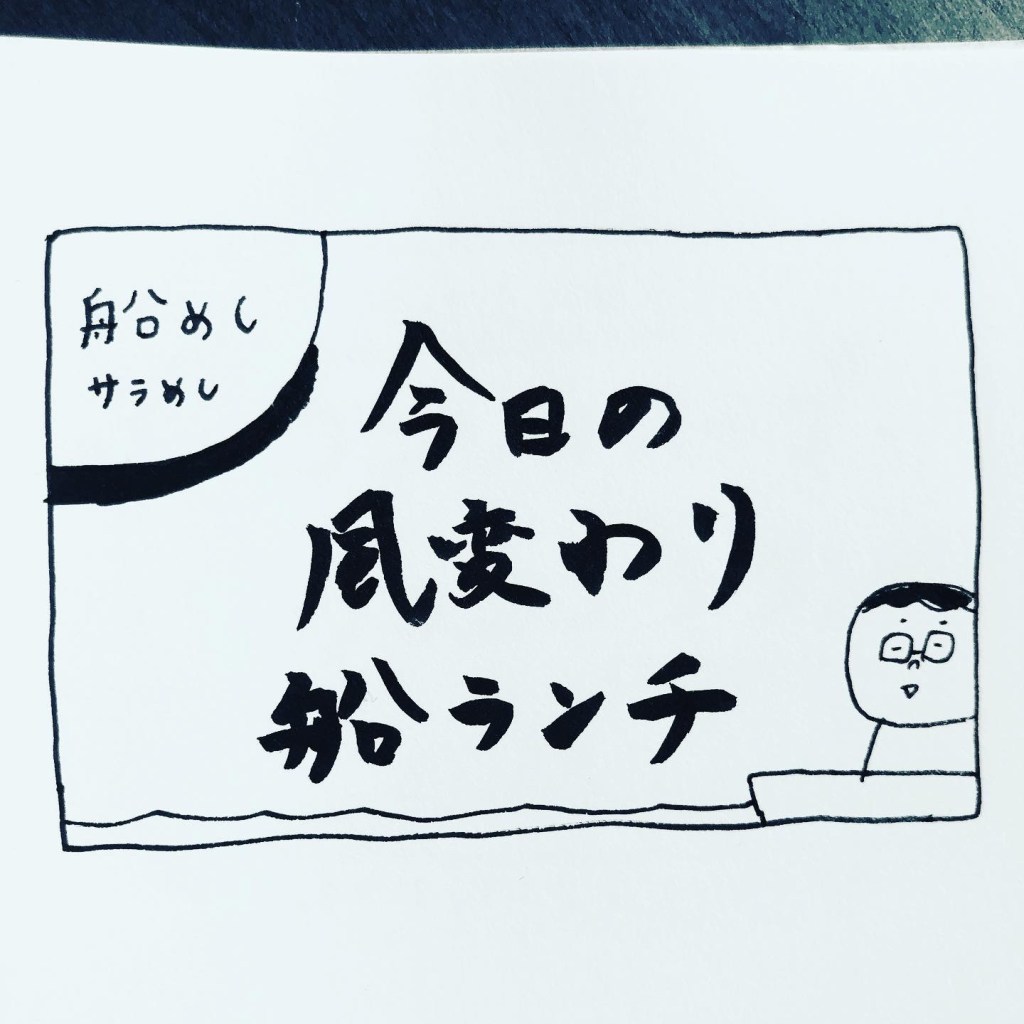 船めし
サラめし
今日の
風変わり
船ランチ